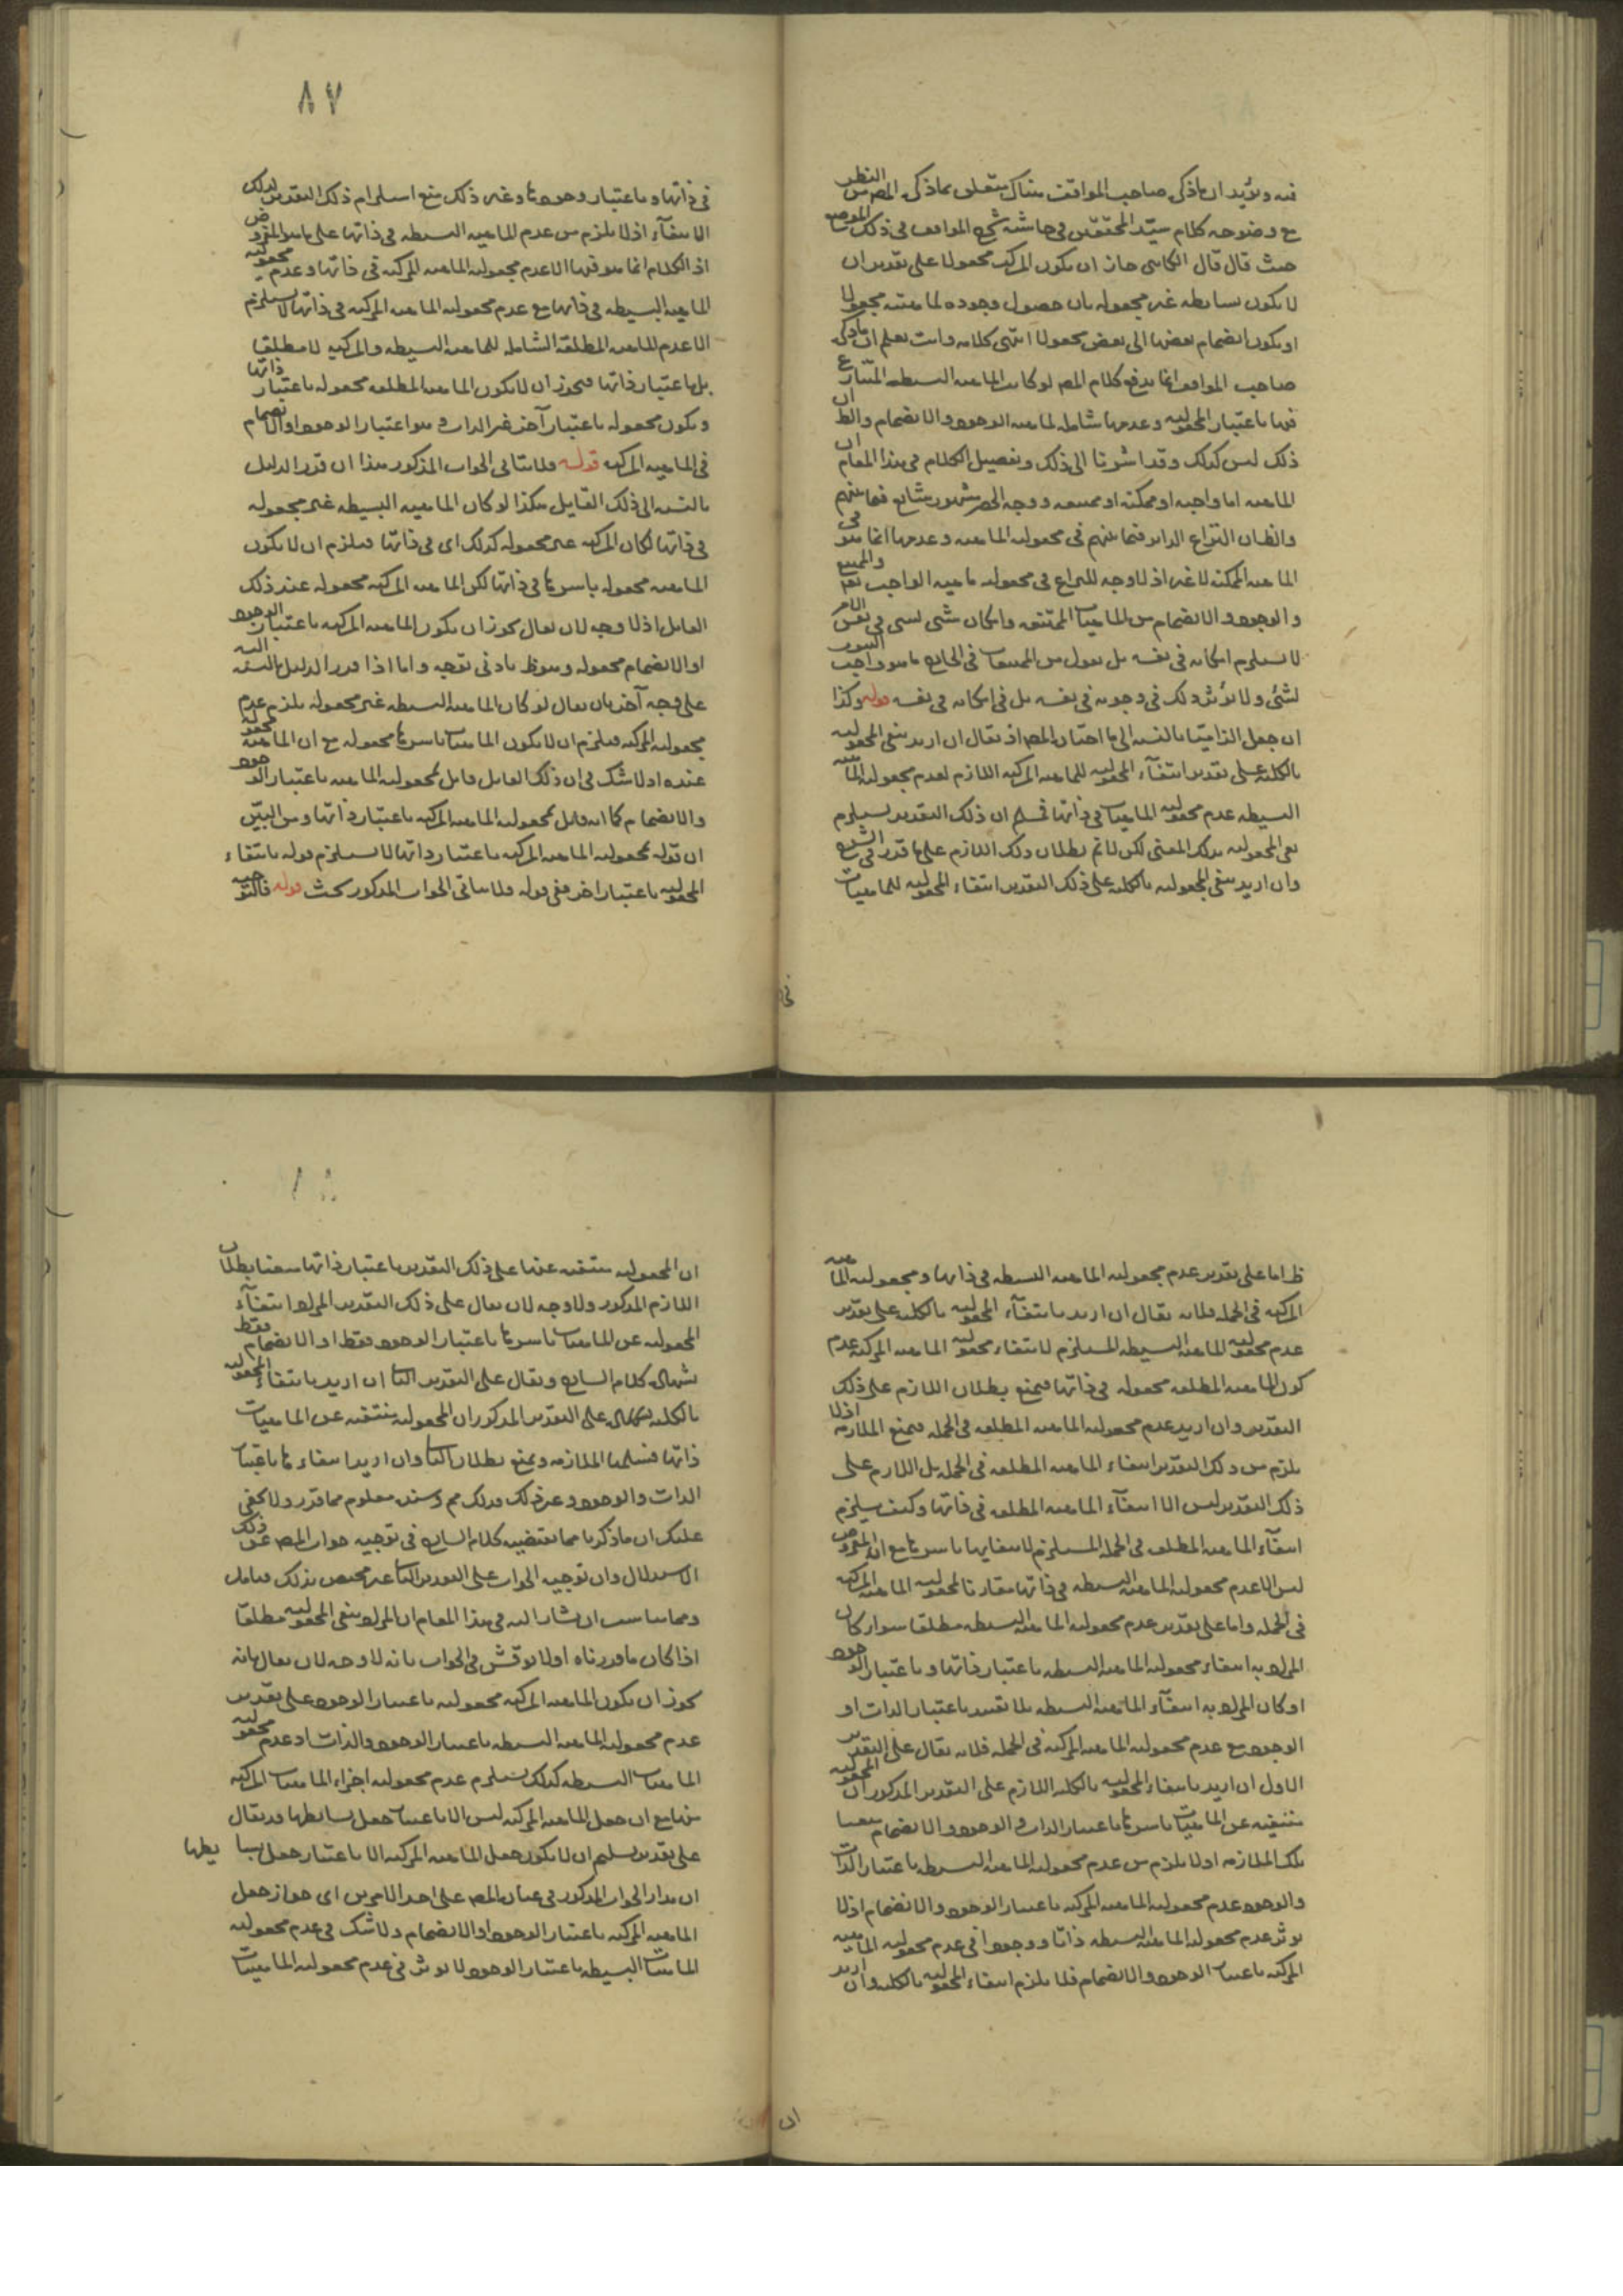 فيه ويؤيد ان ما ذكره صاحب المواقف هناك متعلق بما ذكره المص من النظر
مع وضوحه كلام سيّد المحققين في حاشية شرح المواقف في ذلك الموضع
حيث قال قال الكاتبي جاز ان يكون المركب مجعولا على تقدير ان
لا يكون بسايطه غير مجعوله بان حصول وجوده لماهيته مجعولا
او يكون انضمام بعضها الى بعض مجعولا انتهى كلامه وانت تعلم ان ما ذكره
صاحب المواقف انما يدفع كلام المص لو كانت الماهيه البسيطه المتنازع
فيها باعتبار المجعوليه وعدمها شامله لماهيه الوجود والانضمام والظ ان
ذلك ليس كذلك وقد اشرنا الى ذلك وتفصيل الكلام في هذا المقام ان
الماهيه اما واجبه او ممكنه او ممتنعه ووجه الحصر مشهور شايع فيما بينهم
والظ ان النزاع الداير فيما بينهم في مجعوليه الماهيه وعدمها انما هو في
الماهيه الممكنه لا غير اذ لا وجه للنزاع في مجعوليه ماهيه الواجب والممتنع
والوجود والانضمام من الماهيات الممتنعه وامكان شئ لشئ في نفس الامر
لا يستلزم امكانه في نفسه بل نقول من الممتنعات في الخارج ما هو واجب
لشئ ولا يؤثر ذلك في وجوبه في نفسه بل في امكانه في نفسه قوله وكذا
ان جعل الزاميّا بالنسبه الى ما اختاره المص اذ يقال ان اريد بنفي المجعوليه
بالكليه على تقدير انتفآء المجعوليه للماهيه المركبه اللازم لعدم مجعوليه الماهيه
البسيطه عدم مجعوليه الماهيات في ذاتها فمسلم ان ذلك التقدير يستلزم
نفي المجعوليه بذلك المعنى لكن لا تم بطلان ذلك اللازم على ما قدر في الشرح
وان اريد بنفي المجعوليه بالكليه على ذلك التقدير انتفاء المجعوليه للماهيات
في
٨٧
في ذاتها وباعتبار وجودها وغير ذلك منع استلزام ذلك التقدير لذلك
الانتفآء اذ لا يلزم من عدم الماهيه البسيطه في ذاتها على ما هو المفروض
اذ الكلام انما هو فيها الا عدم مجعوليه الماهيه المركبه في ذاتها وعدم مجعوليه
الماهيه البسيطه في ذاتها مع عدم مجعوليه الماهيه المركبه في ذاتها لا يستلزم
الا عدم الماهيه المطلقة الشامله للماهيه البسيطه والمركبه لا مطلقا
بل باعتبار ذاتها فيجوز ان لا يكون الماهيه المطلقه مجعوله باعتبار ذاتها
ويكون مجعوله باعتبار آخر غير الذات وهو اعتبار الوجود او الانضمام
في الماهيه المركبه قوله فلا يتأتى الجواب المذكور هذا ان قدر الدليل
بالنسبه الى ذلك القايل هكذا لو كان الماهيه البسيطه غير مجعوله
في ذاتها لكان المركبه غير مجعوله كذلك اي في ذاتها فيلزم ان لا يكون
الماهيه مجعوله باسرها في ذاتها لكن الماهيه المركبه مجعوله عند ذلك
القايل اذ لا وجه لان يقال يجوز ان يكون الماهيه المركبه باعتبار الوجود
او الانضمام مجعوله وهو ظ بادنى توجه واما اذا قرر الدليل بالنسبه اليه
على وجه آخر بان يقال لو كان الماهيه البسيطه غير مجعوله يلزم عدم
مجعوليه المركبه فيلزم ان لا يكون الماهيات باسرها مجعوله مع ان الماهيه مجعوله
عنده اذ لا شك في ان ذلك القايل قايل بمجعوليه الماهيه باعتبار الوجود
والانضمام كما انه قايل بمجعوليه الماهيه المركبه باعتبار ذاتها ومن البيّن
ان قوله بمجعوليه الماهيه المركبه باعتبار ذاتها لا يستلزم قوله بانتفاء
المجعوليه باعتبار اخر ففي قوله فلا يتأتى الجواب المذكور بحث قوله فالتوجيه
ظ اما على تقدير عدم مجعوليه الماهيه البسيطه في ذاتها ومجعوليه الماهيه
المركبه في الجمله فلانه يقال ان اريد بانتفآء المجعوليه بالكليه على تقدير
عدم مجعوليه الماهيه البسيطه المستلزم لانتفاء مجعوليه الماهيه المركبه عدم
كون الماهيه المطلقه مجعوله في ذاتها فيمنع بطلان اللازم على ذلك
التقدير وان اريد عدم مجعوليه الماهيه المطلقه في الجمله فيمنع الملازمه اذ لا
يلزم من ذلك التقدير انتفاء الماهيه المطلقه في الجمله بل اللازم على
ذلك التقدير ليس الا انتفآء الماهيه المطلقه في ذاتها وكيف يستلزم
انتفآء الماهيه المطلقه في الجمله المستلزم لانتفايها باسرها مع ان المفروض
ليس الا عدم مجعوليه الماهيه البسيطه في ذاتها مقارنا لمجعوليه الماهيه المركبه
في الجمله واما على تقدير عدم مجعوليه الماهيه البسيطه مطلقا سواء كان
المراد به انتفاء مجعوليه الماهيه البسيطه باعتبار ذاتها وباعتبار الوجود
او كان المراد به انتفآء الماهيه البسيطه بلا تقييد باعتبار الذات او
الوجود مع عدم مجعوليه الماهيه المركبه في الجمله فلانه يقال على التقدير
الاول ان اريد بانتفاء المجعوليه بالكليه اللازم على التقدير المذكور ان المجعوليه
منتفيه عن الماهيات باسرها باعتبار الذات والوجود والانضمام منعنا
تلك الملازمه اذ لا يلزم من عدم مجعوليه الماهيه البسيطه باعتبار الذات
والوجود عدم مجعوليه الماهيه المركبه باعتبار الوجود والانضمام اذ لا
يؤثر عدم مجعوليه الماهيه البسيطه ذاتا ووجودا في عدم مجعوليه الماهيه
المركبه باعتبار الوجود والانضمام فلا يلزم انتفاء المجعوليه بالكليه وان اريد
ان
ان المجعوليه منتفيه عنها على ذلك التقدير باعتبار ذاتها منعنا بطلان
اللازم المذكور ولا وجه لان يقال على ذلك التقدير المراد انتفآء
المجعوليه عن الماهيات باسرها باعتبار الوجود فقط او الانضمام فقط
بشهاده كلام الشارح ويقال على التقدير الثاني ان اريد بانتفاء المجعوليه
بالكليه على التقدير المذكور ان المجعوليه منتفيه عن الماهيات
ذاتها فنسلمها الملازمه ويمنع بطلان الثاني وان اريد انتفاءها باعتبار
الذات والوجود وغير ذلك فذلك مم وسنده معلوم مما قدر ولا يخفى
عليك ان ما ذكرنا مما يقتضيه كلام الشارح في توجيه جواب المص عن ذلك
الاستدلال وان توجيه الجواب على التقدير الثاني غير مختص بذلك فتامل
ومما يناسب ان يشار اليه في هذا المقام ان المراد بنفي المجعوليه مطلقا
اذا كان ما قررناه اولا نوقش في الجواب بانه لا وجه لان يقال بانه
يجوز ان يكون الماهيه المركبه مجعوليه باعتبار الوجود على تقدير
عدم مجعوليه الماهيه البسيطه باعتبار الوجود والذات اذ عدم مجعوليه
الماهيات البسيطه كذلك يستلزم عدم مجعوليه اجزاء الماهيات المركبه
منها مع ان جعل الماهيه المركبه ليس الا باعتبار جعل بسايطها وقد يقال
على تقدير تسليم ان لا يكون جعل الماهيه المركبه الا باعتبار جعل بسايطها
ان مدار الجواب المذكور في عبارة المص على احد الامرين اي جواز جعل
الماهيه المركبه باعتبار الوجود او الانضمام ولا شك في عدم مجعوليه
الماهيات البسيطه باعتبار الوجود لا يؤثر في عدم مجعوليه الماهيات